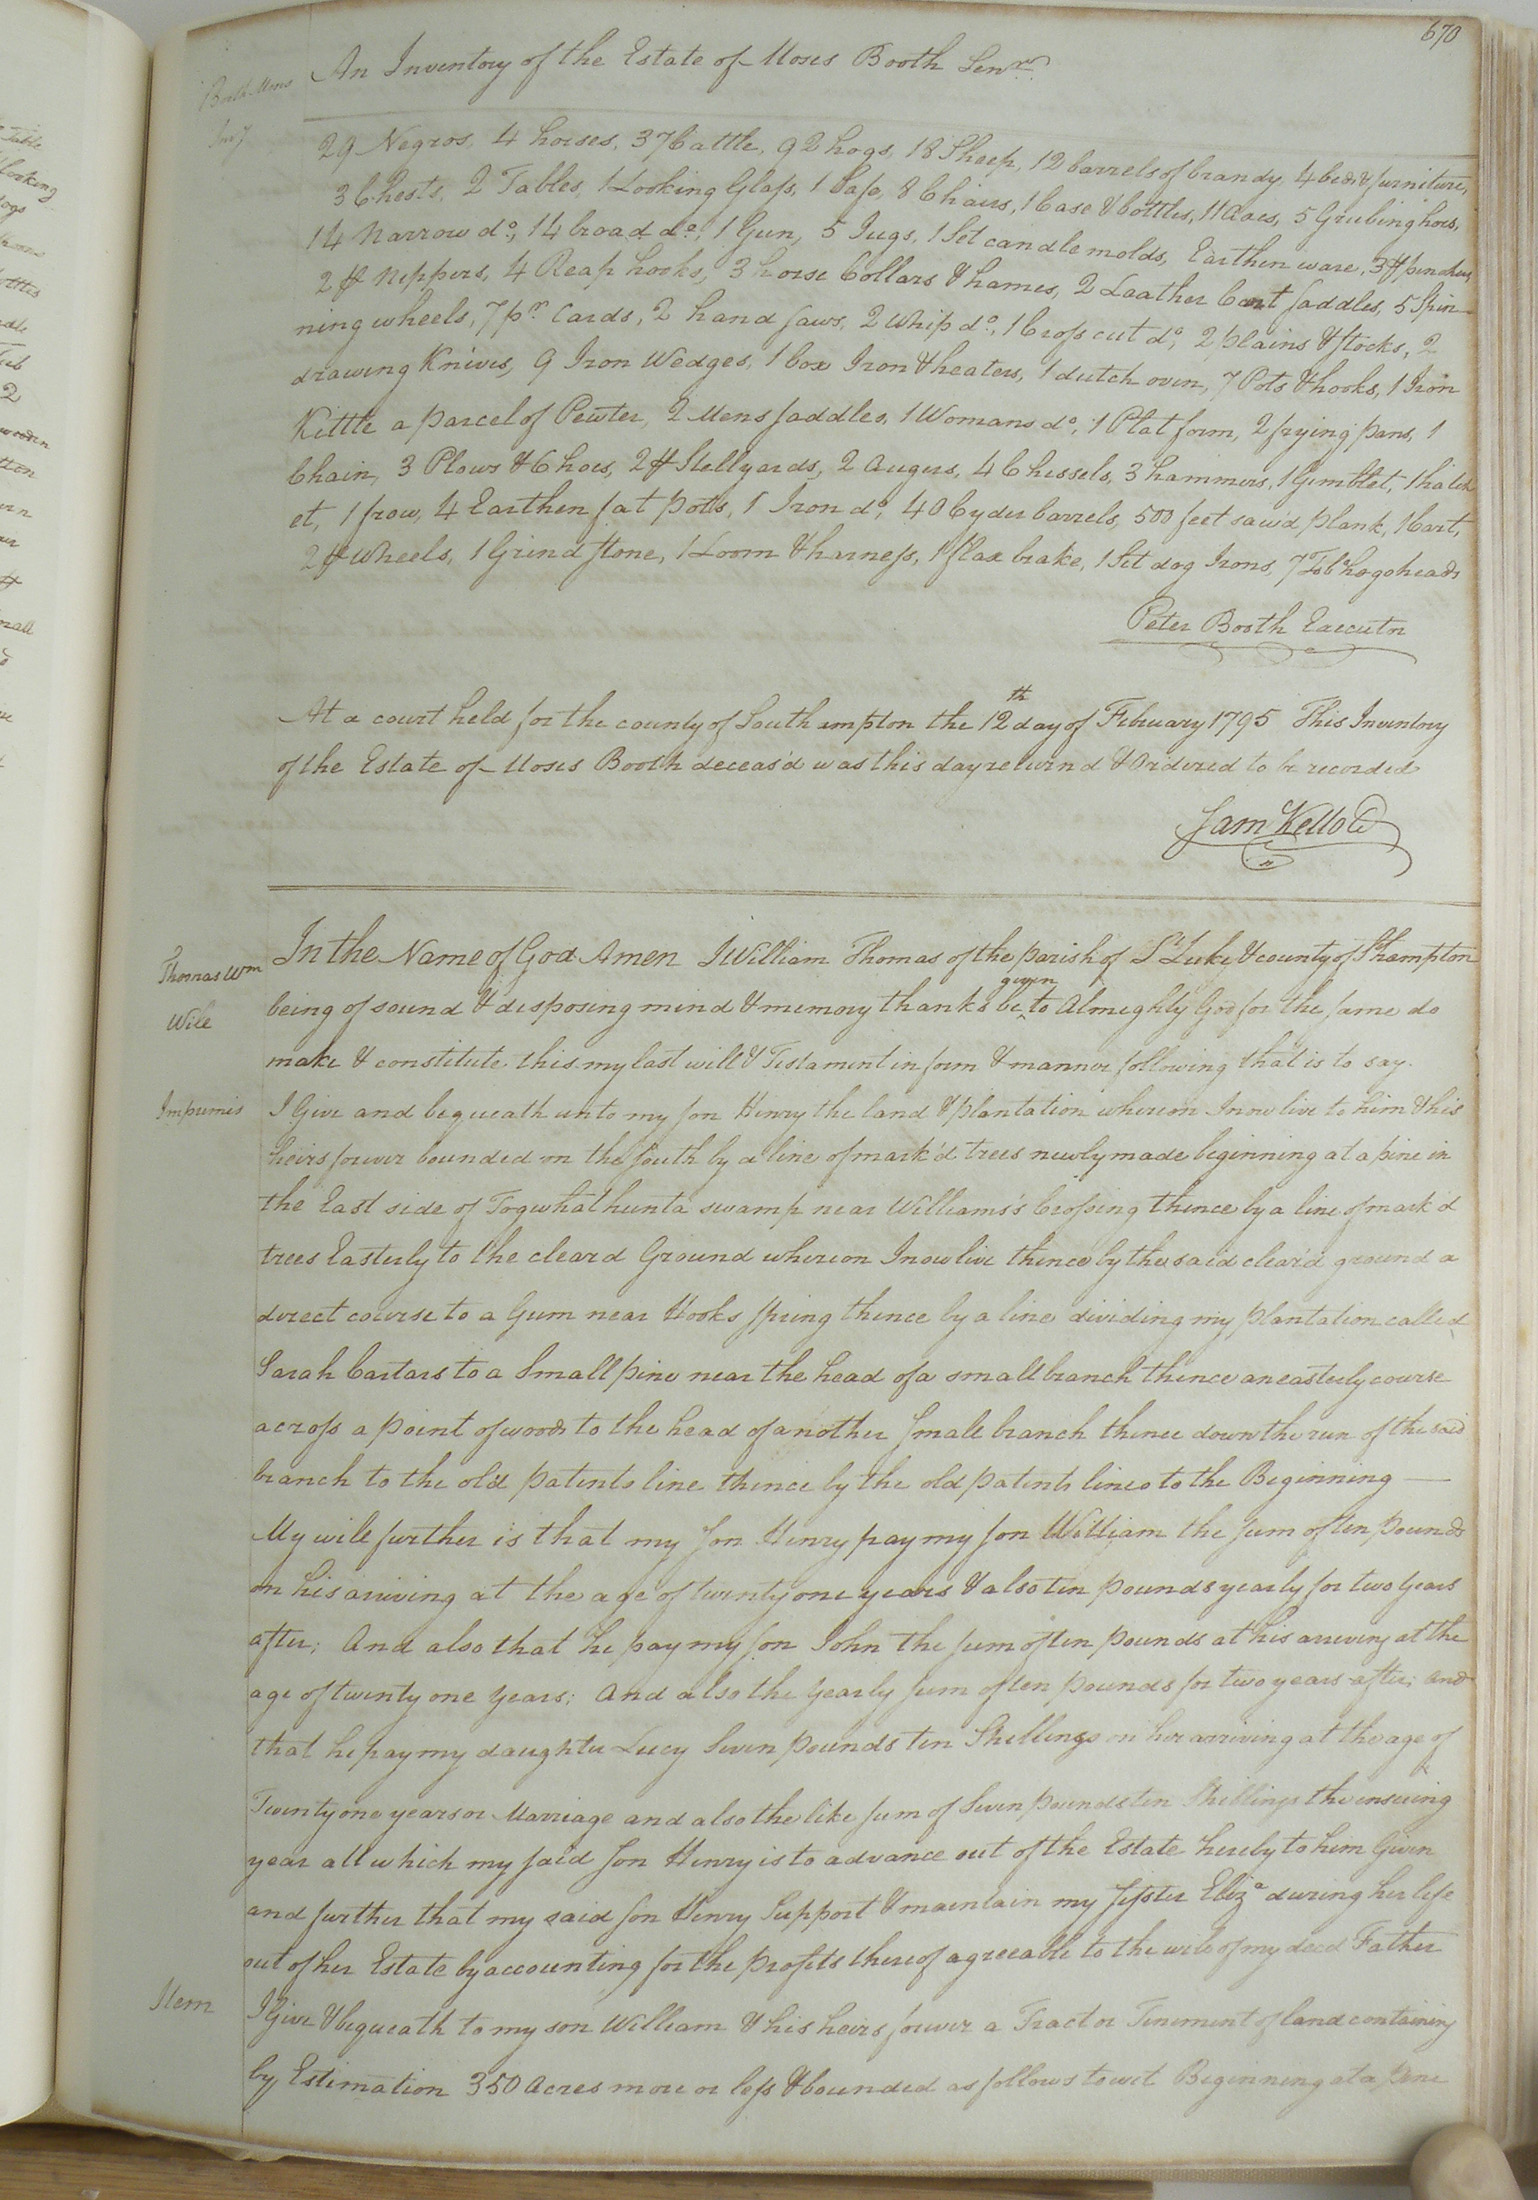 670
An Inventory of the Estate of Moses Booth Senr.
Booth Moses
Invy
29 Negros, 4 horses, 37 Cattle, 92 hogs, 18 Sheep, 12 barrels of brandy, 4 beds & furniture,
3 Chests, 2 Tables, 1 Looking Glass, 1 Safe, 8 Chairs, 1 Case & bottles, 11 Axes, 5 Grubing hoes,
14 Narrow do., 14 broad do., 1 Gun, 5 Jugs, 1 Set candle molds, Earthen ware, 3 pr pinchers,
2 pr Neppers, 4 Reap hooks, 3 horse Collars & hames, 2 Leather Cart saddles, 5 Spin-
ning wheels, 7 pr. Cards, 2 hand saws, 2 Whip do., 1 Cross cut do., 2 plains & stocks, 2
drawing Knives, 9 Iron Wedges, 1 box Iron & heaters, 1 dutch oven, 7 Pots & hooks, 1 Iron
Kittle a parcel of Pewter, 2 Mens saddles, 1 Womans do., 1 Plat form, 2 frying pans, 1
Chain, 3 Plows & 6 hoes, 2 pr Stellyards, 2 augers, 4 Chessels, 3 hammers, 1 Gimblet, 1 hatch
et, 1 frow, 4 Earthen fat potts, 1 Iron do., 40 Cyder barrels, 500 feet saw'd plank, 1 Cart,
2 pr Wheels, 1 Grind stone, 1 Loom & harness, 1 flax brake, 1 Set dog Irons, 7 Tobo. hogsheads
Peter Booth Executor
At a court held for the county of Southampton the 12th day of February 1795 This Inventory
of the Estate of Moses Booth deceas'd was this day return'd & Ordered to be recorded
Sam Kello C
Thomas Wm
Will
In the Name of God Amen I William Thomas of the parish of St. Luke & county of S.hampton
being of sound & disposing mind & memory thanks be given to Almighty God for the same do
make & constitute this my last will & Testament in form & manner following that is to say.
Impremis I Give and bequeath unto my son Henry the land & plantation whereon I now live to him & his
heirs forever bounded on the south by a line of mark'd trees newly made beginning at a pine in
the East side of Togwhathunta swamp near Williams's Crossing thence by a line of mark'd
trees Easterly to the clear'd Ground whereon I now live thence by the said clear'd ground a
direct course to a Gum near Hooks spring thence by a line dividing my plantation called
Sarah Cartars to a small pine near the head of a small branch thence an easterly course
across a point of woods to the head of another small branch thence down the run of the said
branch to the old patents line thence by the old patents lines to the Beginning —
My will further is that my son Henry pay my son William the sum of ten pounds
on his ariving at the age of twenty one years & also ten pounds yearly for two years
after; And also that he pay my son John the sum of ten pounds at his arriving at the
age of twenty one years; And also the yearly sum of ten pounds for two years after; and
that he pay my daughter Lucy Seven pounds ten Shillings on her arriving at the age of
Twenty one years or Marriage and also the like sum of Seven pounds ten Shillings the ensuing
year all which my said son Henry is to advance out of the Estate hereby to him Given
and further that my said son Henry Support & maintain my sister Eliza during her life
out of her Estate by accounting for the profits thereof agreeable to the will of my decd Father
Item I Give & bequeath to my son William & his heirs forever a Tract or Tenement of land containing
by Estimation 350 Acres more or less & bounded as follows to wit Beginning at a pine